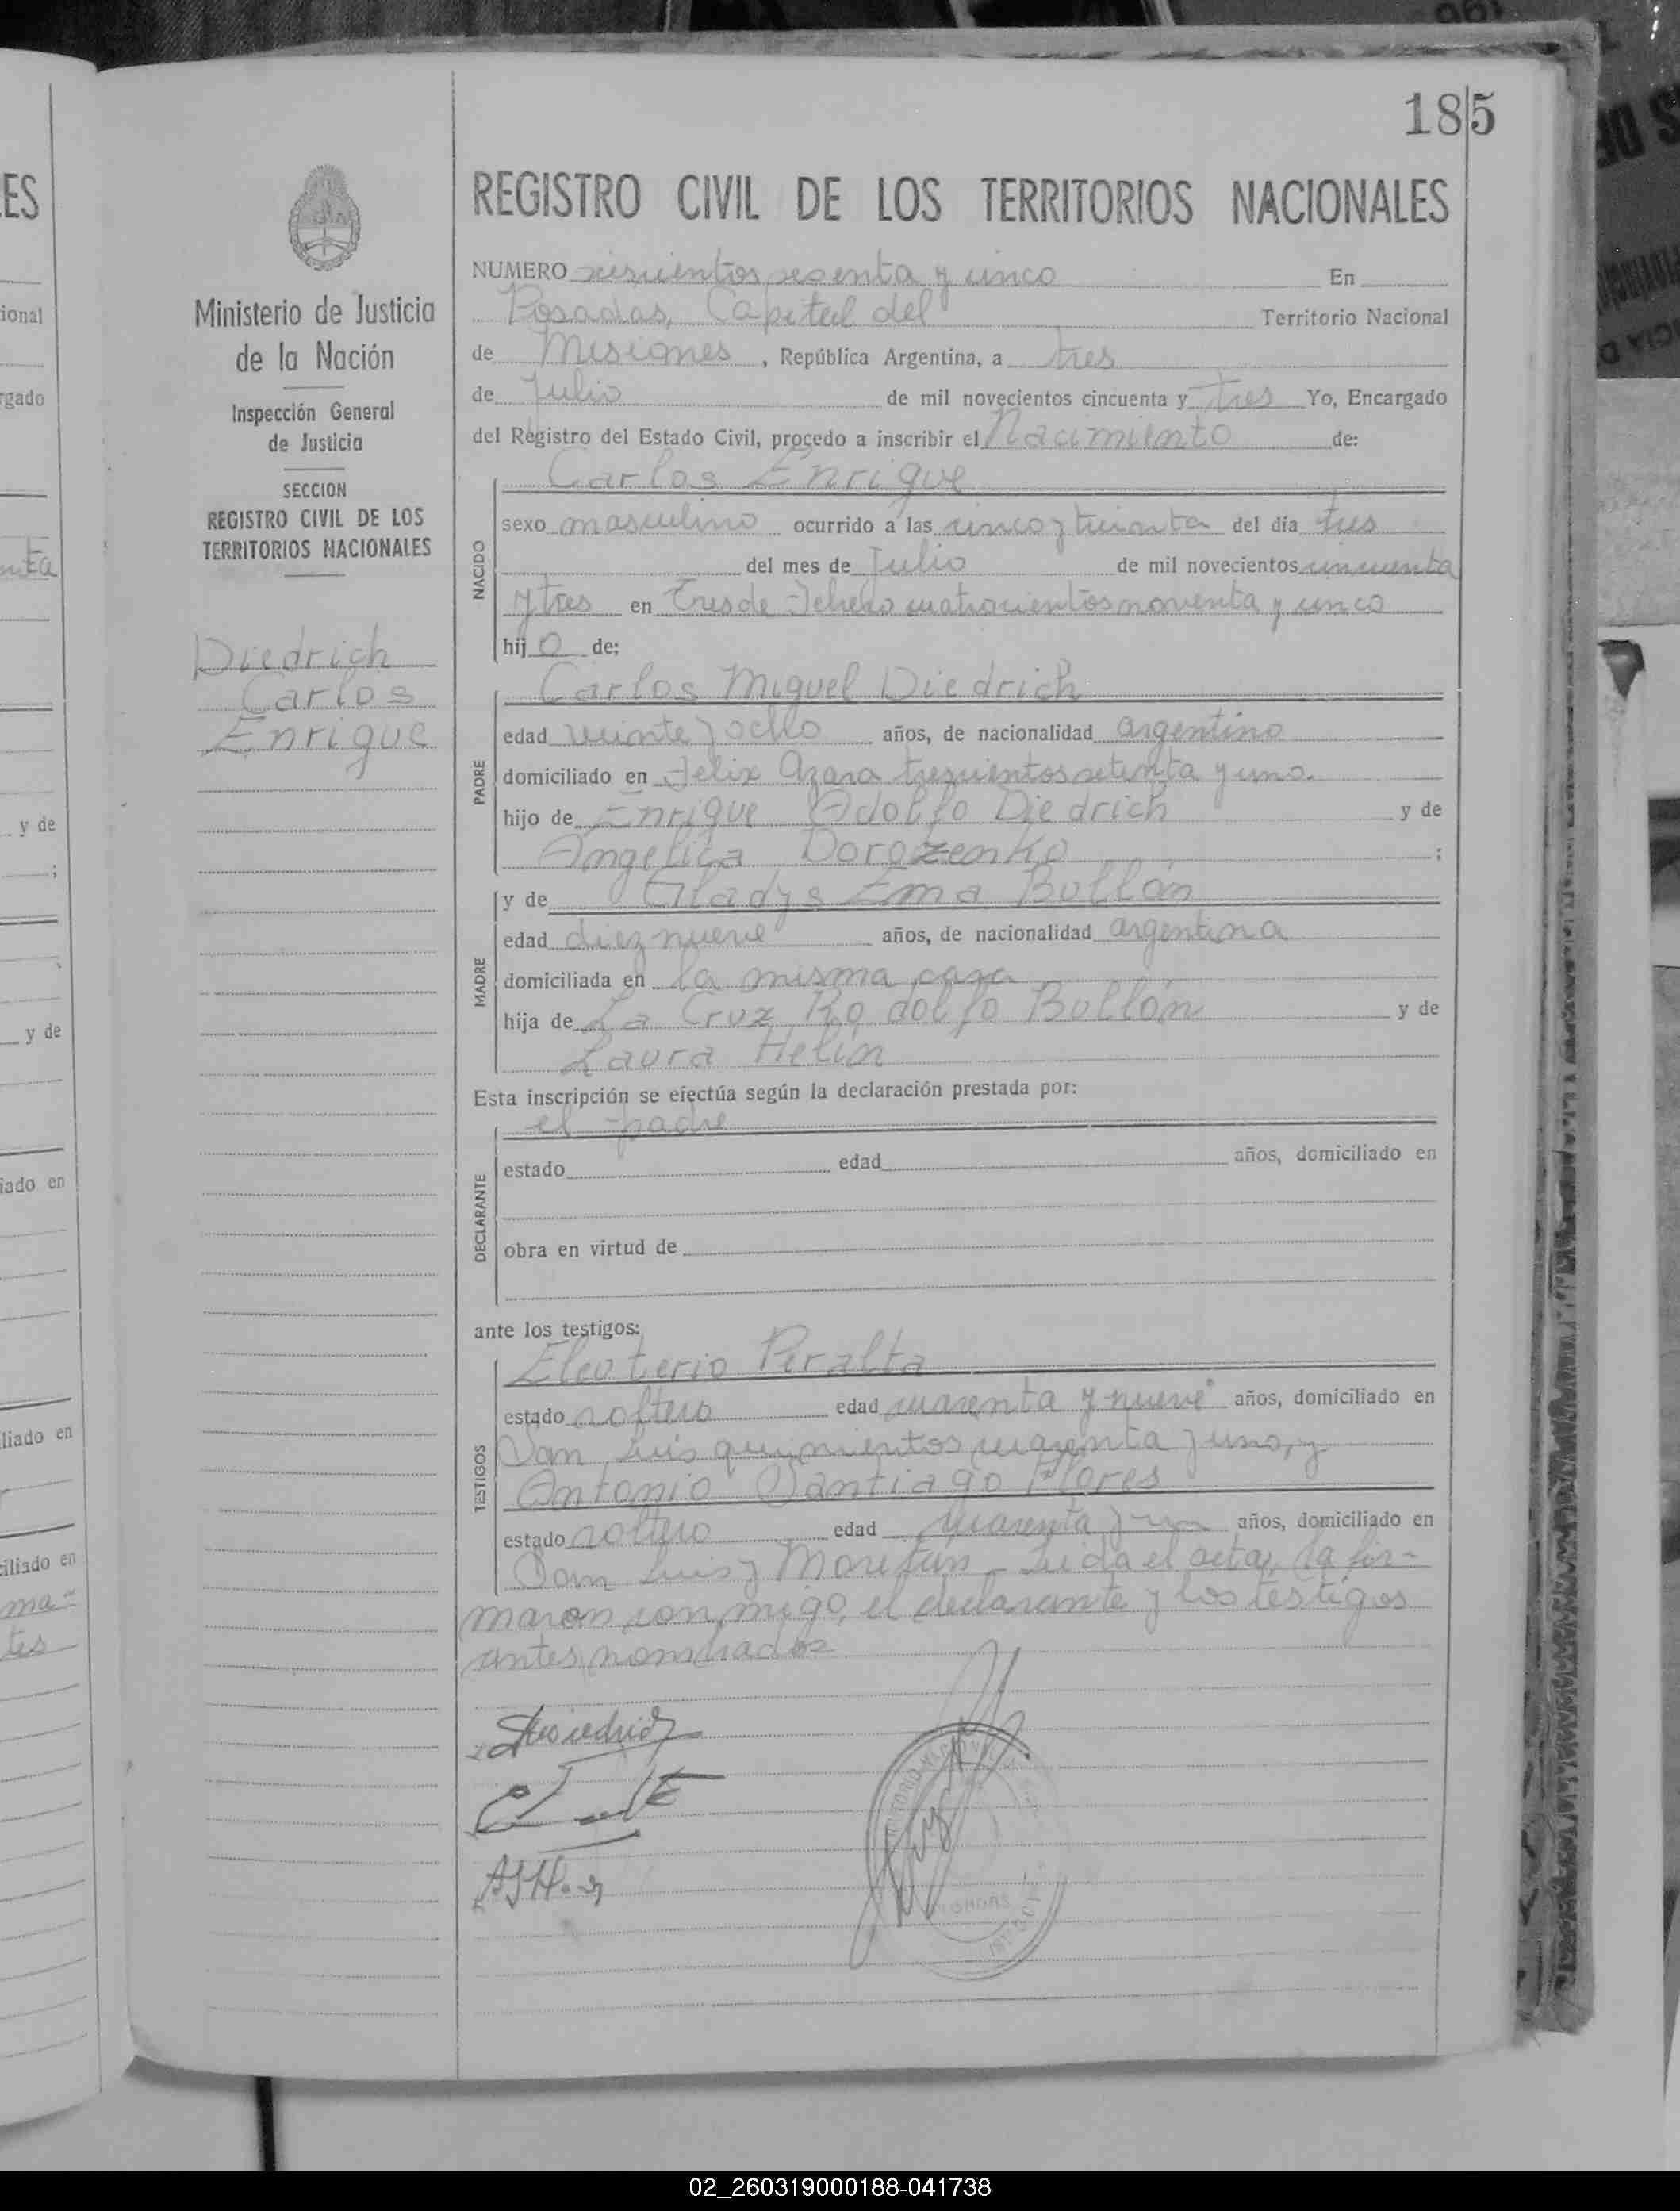 185
REGISTRO CIVIL DE LOS TERRITORIOS NACIONALES
Ministerio de Justicia
de la Nación
Inspección General
de Justicia
SECCION
REGISTRO CIVIL DE LOS
TERRITORIOS NACIONALES
Diedrich
Carlos
Enrique
NUMERO seiscientos sesenta y cinco En
Posadas, Capital del Territorio Nacional
de Misiones, República Argentina, a tres
de Julio de mil novecientos cincuenta y tres Yo, Encargado
del Registro del Estado Civil, procedo a inscribir el Nacimiento de:
NACIDO
Carlos Enrique
sexo masculino ocurrido a las cinco y treinta del día tres
del mes de Julio de mil novecientos cincuenta
y tres en Tres de Febrero cuatrocientos noventa y cinco
hijo de:
PADRE
Carlos Miguel Diedrich
edad veinte y ocho años, de nacionalidad argentino
domiciliado en Felix Azara trescientos setenta y uno.
hijo de Enrique Adolfo Diedrich y de
Angelica Dorozenko ;
MADRE
y de Gladys Ema Bullón
edad diez nueve años, de nacionalidad argentina
domiciliada en la misma casa
hija de La Cruz Rodolfo Bullón y de
Laura Helin
Esta inscripción se efectúa según la declaración prestada por:
DECLARANTE
el padre
estado edad años, domiciliado en
obra en virtud de
ante los testigos:
TESTIGOS
Eleuterio Peralta
estado soltero edad cuarenta y nueve años, domiciliado en
San Luis quinientos cuarenta y uno, y
Antonio Santiago Flores
estado soltero edad cuarenta y un años, domiciliado en
San Luis y . Leida el acta, la fir=
maron conmigo, el declarante y los testigos
antes nombrados
ES
ional
rgado
nta
y de
;
y de
iado en
liado en
ciliado en
ma=
tes
02_260319000188-041738